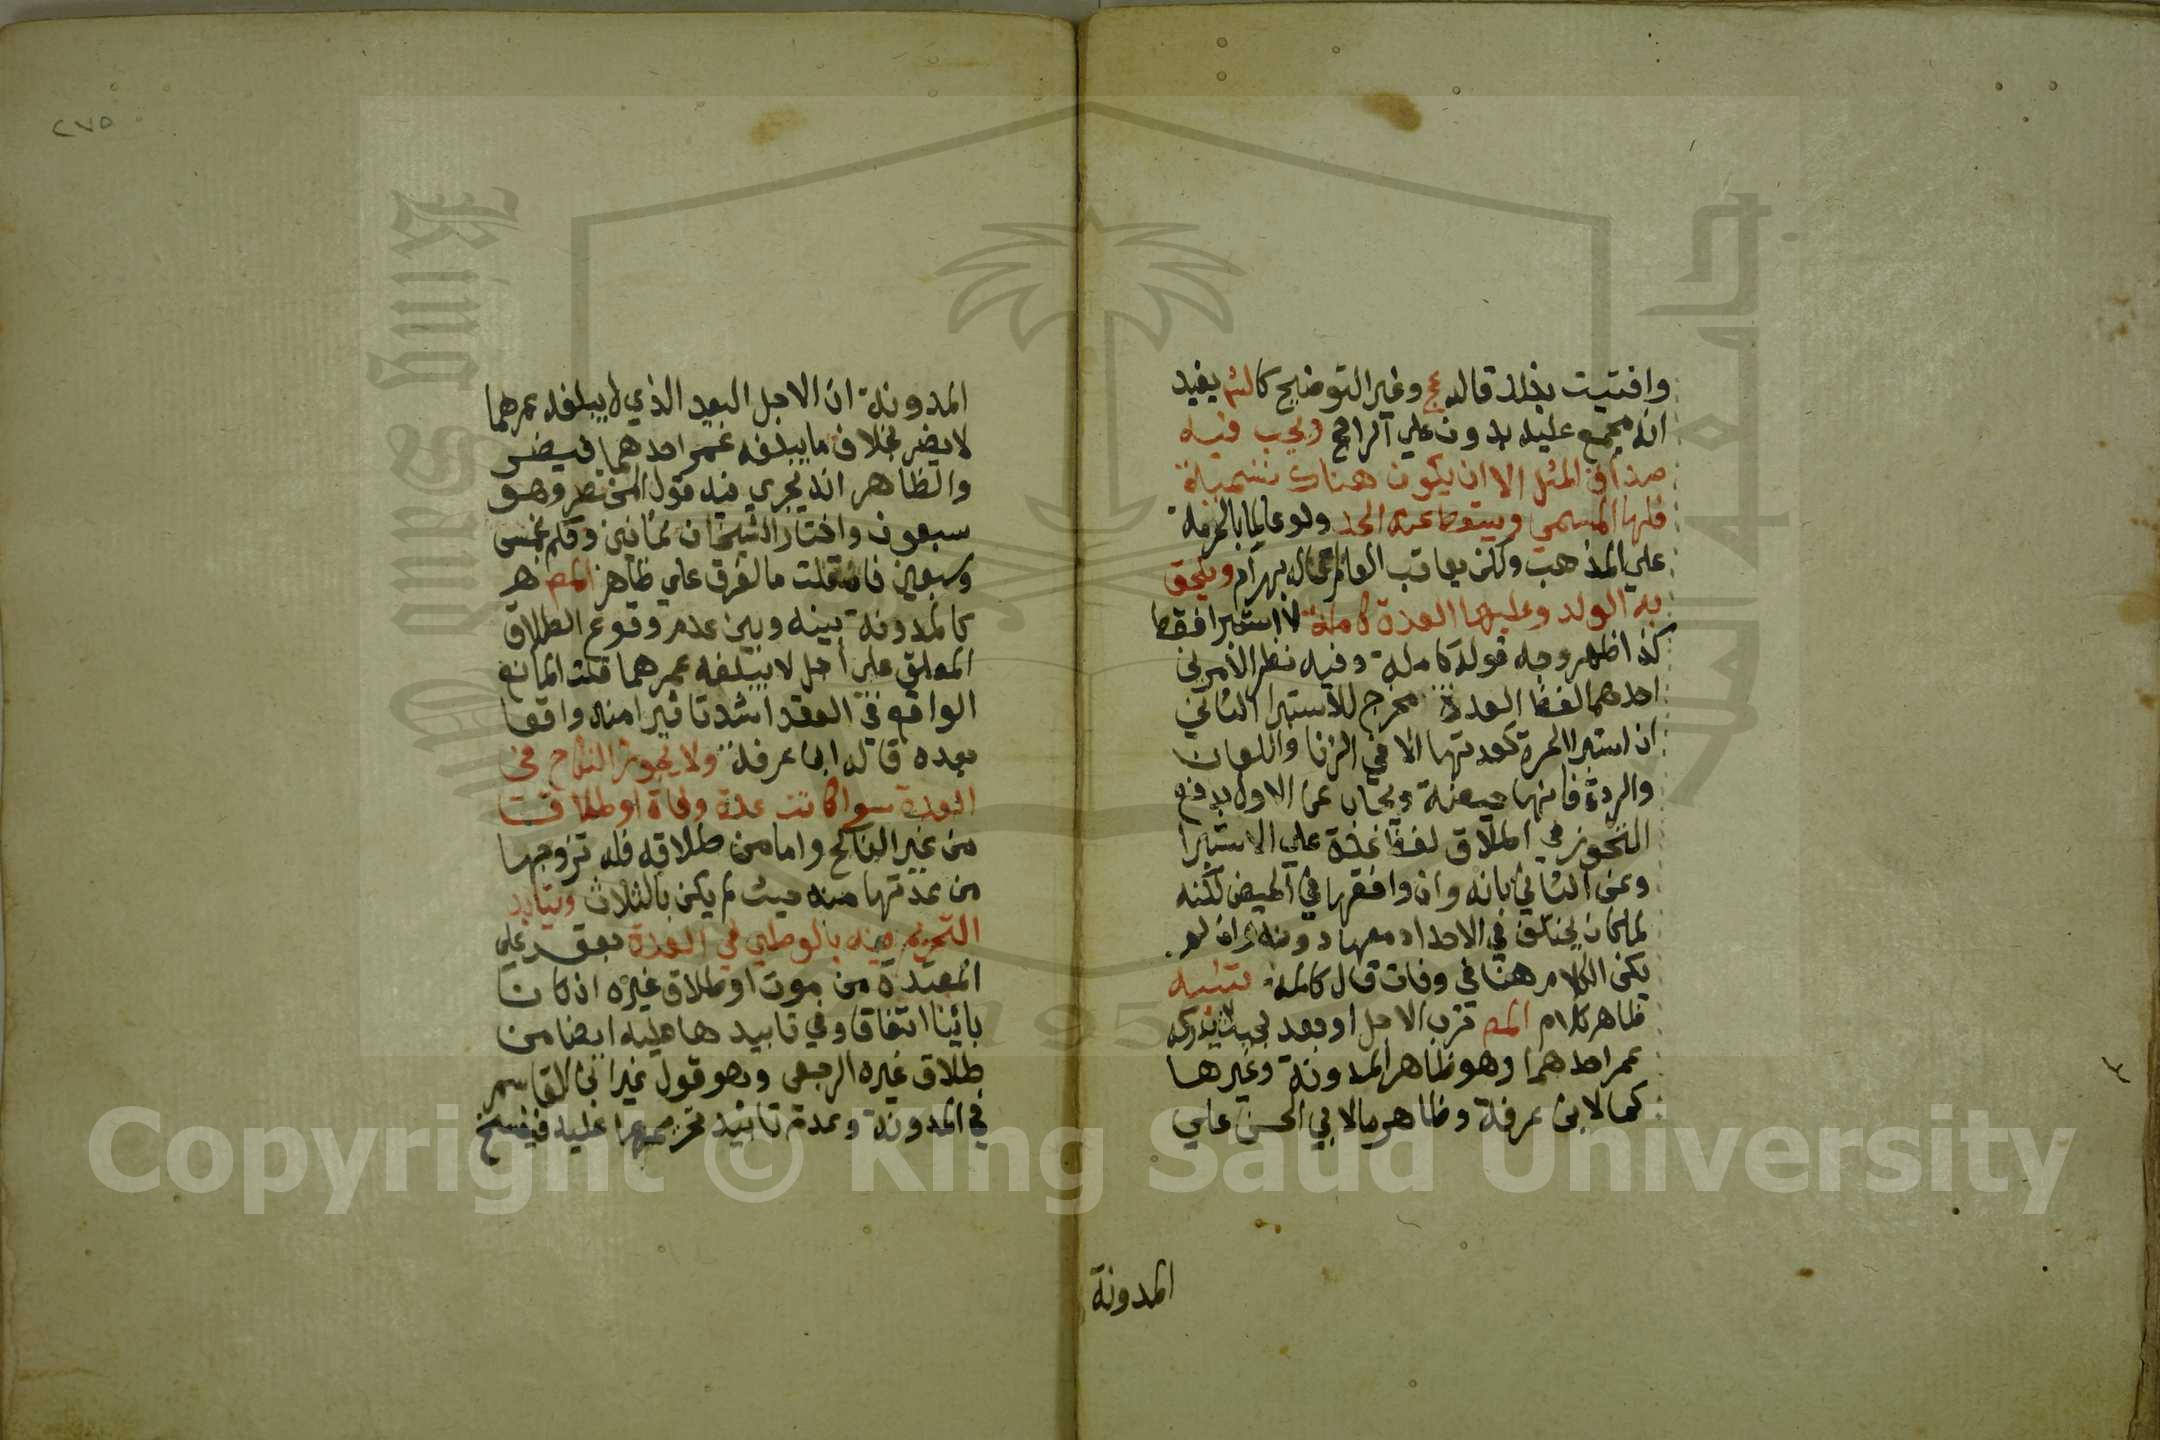 وافتيت بذلك قاله عج وغير التوضيح كالش يفيد
انه مجمع عليه بدون علي الراجح ويجب فيه
صداق المثل الا ان يكون هناك تسمية
فلها المسمي ويسقط عنه الحد ولو عالما بالحرمة
علي المذهب ولكن يعاقب العالم قاله بهرام ويلحق
به الولد وعليها العدة كاملة لا استبرا فقط
كذا ظهر وجه قوله كاملة وفيه نظر لأمرين
احدهما لفظ العدة مخرج للاستبرا الثاني
ان استبرا الحرة كعدتها الا في الزنا واللعان
والردة فانها حيضة ويجاب عن الاول بدفع
التجوز في اطلاق لفظ عدة علي الاستبرا
وعن الثاني بانه وان وافقها في الحيض لكنه
لما كان يختلف في الاحداد معها دونه وان لم
يكن الكلام هنا في وفات قال كاملة تنبيه
ظاهر كلام المص قرب الاجل او بعد بحيث لا يدركه
عمر احدهما وهو ظاهر المدونة وغيرها
كما لابن عرفة وظاهر ما لابي الحسن علي
المدونة
٢٧٥
المدونة ان الاجل البعيد الذي لا يبلغه عمرهما
لا يضر بخلاف ما يبلغه عمر احدهما فيضر
والظاهر انه يجري فيه قول المختصر وهو
سبعون واختار الشيخان ثمانين وحكم بخمس
وسبعين فان قلت ما الفرق علي ظاهر المص هو
كالمدونة بينه وبين عدم وقوع الطلاق
المعلق علي أجل لا يبلغه عمرهما قلت المانع
الواقع في العقد اشد تاثيرا منه واقعا
بعده قاله ابن عرفة ولا يجوز النكاح في
العدة سوا كانت عدة وفاة او طلاق
من غير الناكح واما من طلاقه فله تزوجها
من عدتها منه حيث لم يكن بالثلاث ويتابد
التحريم فيه بالوطئ في العدة بعقد علي
المعتدة من موت او طلاق غيره ان كان
بائينا اتفاقا وفي تابيدها عليه ايضا من
طلاق غيره الرجعي وهو قول غير ابن القاسم
في المدونة وعدم تابيد تحريمها عليه فيفسخ
Copyright © King Saud University
King Saud University
1957